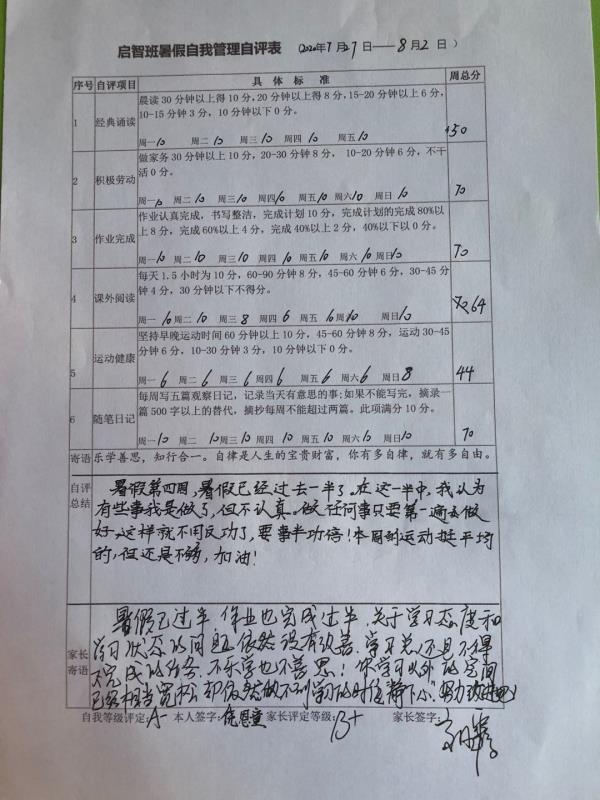 启智班暑假自我管理自评表 (2020年7月27日——8月2日)
序号 自评项目 具体标准 周总分
晨读30分钟以上得10分,20分钟以上得8分,15-20分钟以上6分,
1 经典诵读 10-15分钟3分,10分钟以下0分。
周一10 周二10 周三10 周四10 周五10 50
做家务30分钟以上10分,20-30分钟8分, 10-20分钟6分,不干
2 积极劳动 活0分。
周一10 周二10 周三10 周四10 周五10 周六10 周日10 70
作业认真完成,书写整洁,完成计划10分,完成计划的完成80%以
3 作业完成 上8分,完成60%以上4分,完成40%以上2分,40%以下以0分。
周一10 周二10 周三10 周四10 周五10 周六10 周日10 70
每天1.5小时为10分,60-90分钟8分,45-60分钟6分,30-45分
4 课外阅读 钟4分,30分钟以下不得分。
周一10 周二10 周三8 周四6 周五 周六10 周日10 64
坚持早晚运动时间60分钟以上10分,45-60分钟8分,运动30-45
5 运动健康 分钟6分,10-30分钟3分,10分钟以下0分。
周一6 周二6 周三6 周四6 周五6 周六6 周日8 44
每周写五篇观察日记,记录当天有意思的事;如果不能写完,摘录一
6 随笔日记 篇500字以上的替代,摘抄每周不能超过两篇。此项满分10分。
周一10 周二10 周三10 周四10 周五10 周六10 周日10 70
寄语 乐学善思,知行合一。自律是人生的宝贵财富,你有多自律,就有多自由。
自评总结 暑假第四周,暑假已经过去一半了。在这一半中,我认为
有些事我是做了,但不认真。做任何事只要第一遍去做
好,这样就不用反功了,要事半功倍!本周的运动挺平均
的,但还是不够,加油!
家长寄语 暑假已过半,作业也完成过半,关于学习态度和
学习状态的问题依然没有改善,学习总还是不得
不完成的任务,不乐学也不善思!你学习以外的空间
已经相当宽松,却依然做不到学习的时候静下心,努力
自我等级评定:A- 本人签字: 家长评定等级:B+ 家长签字: